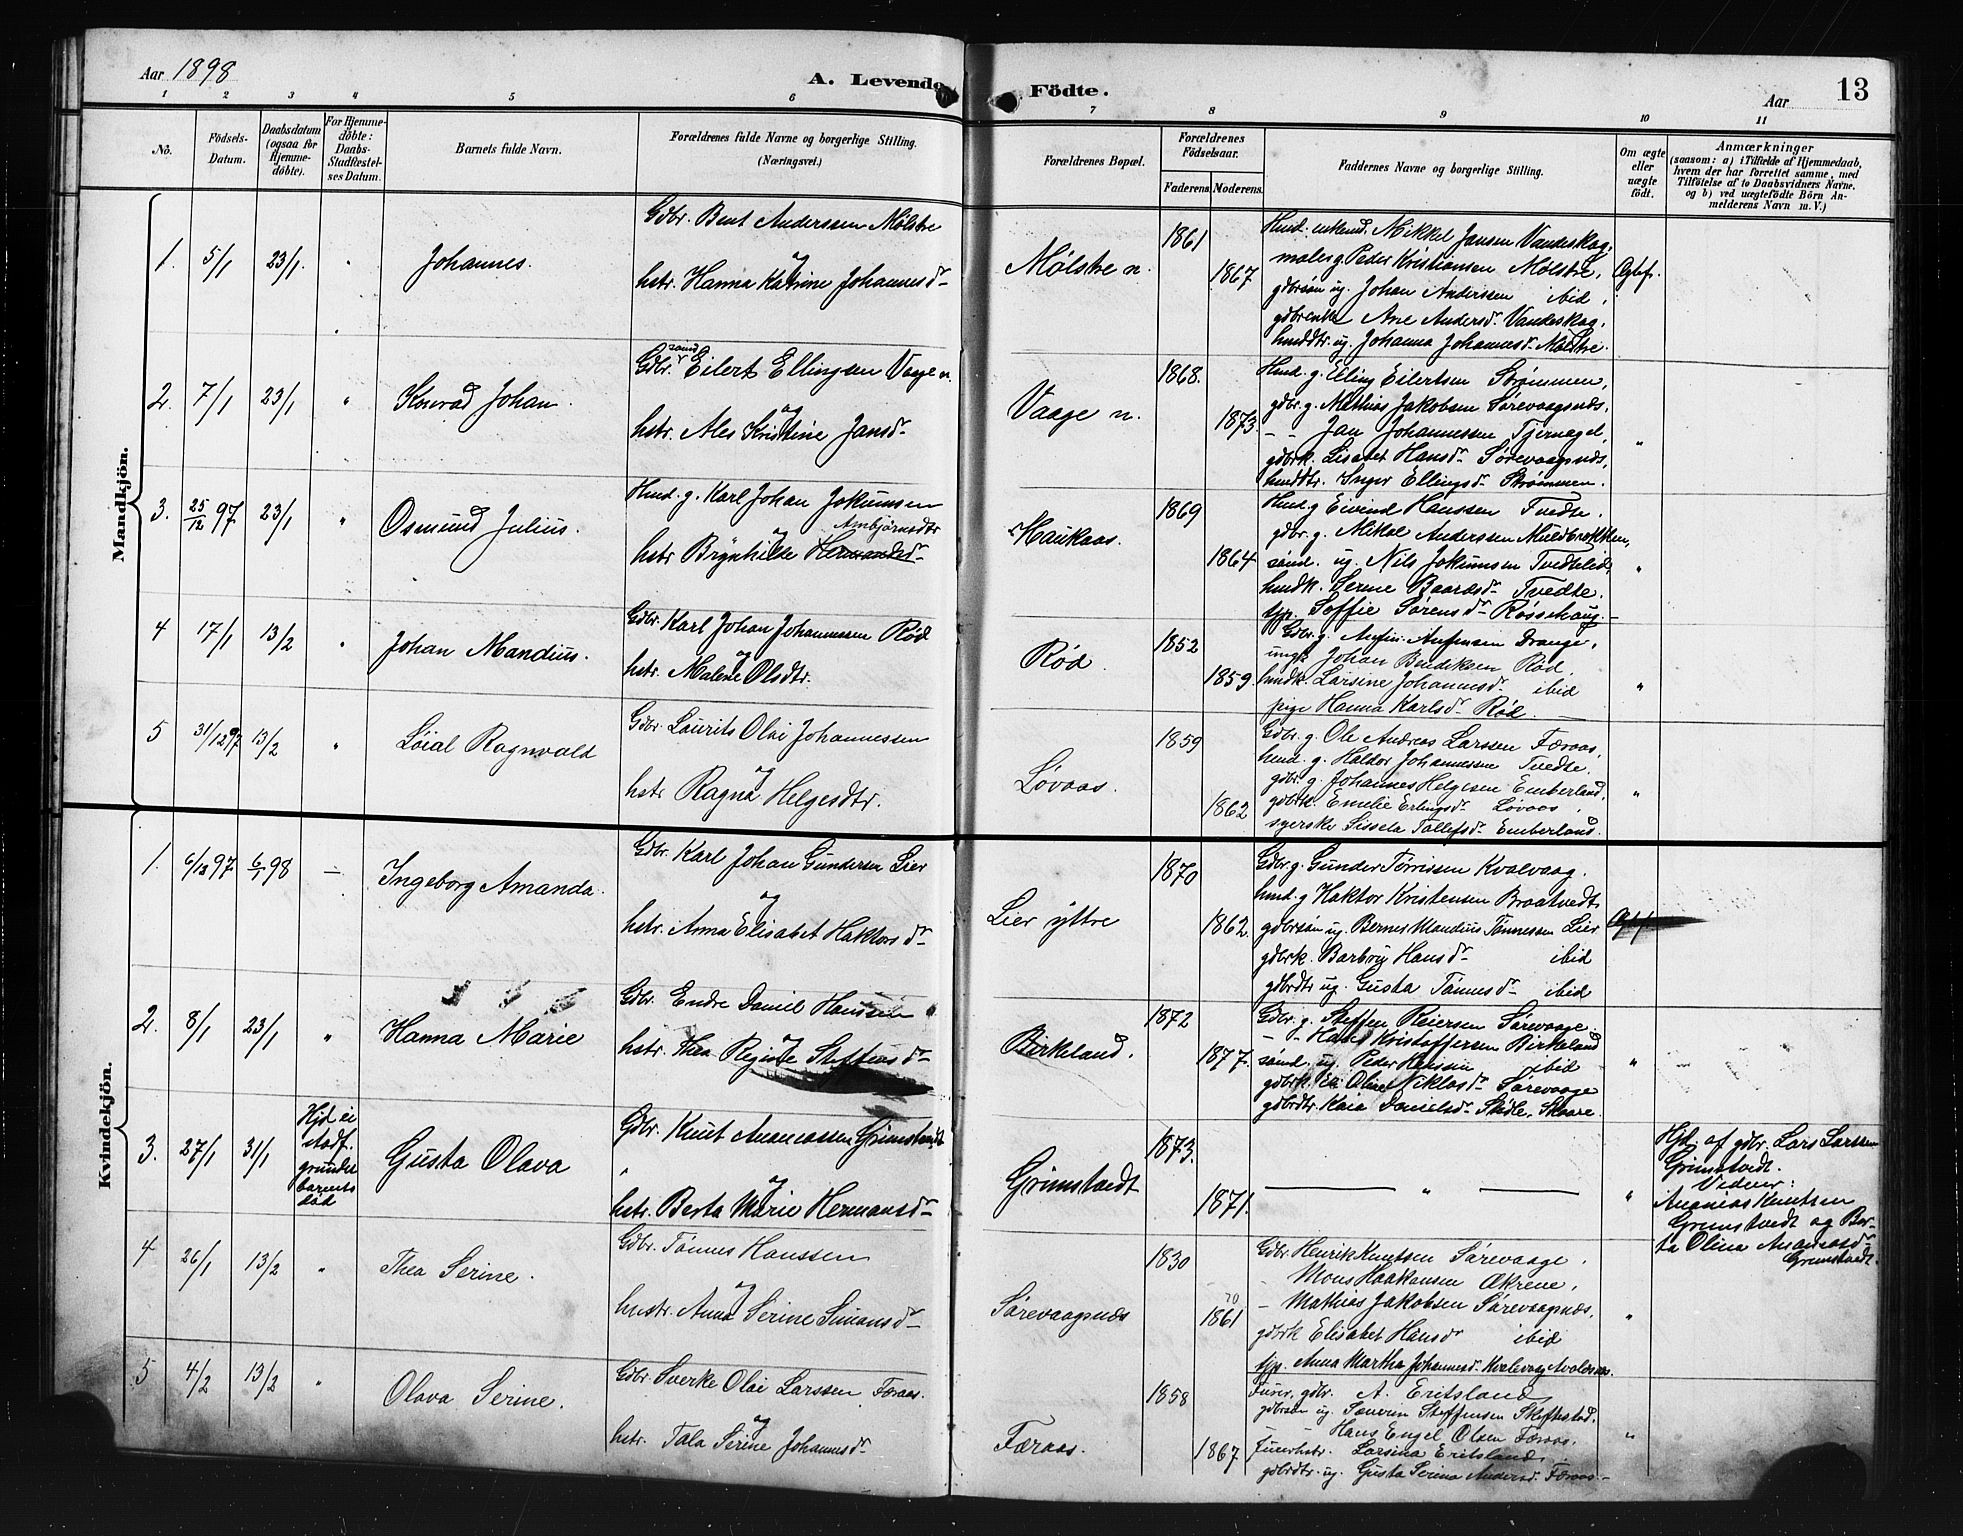 Aar 1898
A. Levende Födte.
Aar
13
1 2 3 4 5 6 7 8 9 10 11
No.
Födsels-Datum.
Daabsdatum (ogsaa for Hjemmedöbte).
For Hjemmedöbte: Daabs-Stadfæstelses Datum.
Barnets fulde Navn.
Forældrenes fulde Navne og borgerlige Stilling. (Næringsvei.)
Forældrenes Bopæl.
Forældrenes Födselsaar.
Faderens. Moderens.
Faddernes Navne og borgerlige Stilling.
Om ægte eller uægte födt.
Anmærkninger
(saasom: a) i Tilfælde af Hjemmedaab, hvem der har forrettet samme, med Tilföielse af to Daabsvidners Navne, og b) ved uægtefödte Börn Anmelderens Navn m. V.)
Mandkjön.
1. 5/1 23/1 " Johannes.
Gdbr. Bent Anderssen Mølstre
og
hstr. Hanna Katrine Johannesdr
Mølstre n. 1861 1867
Husd. enkemd. Mikkel Jansen Vandeskog,
maler g. Peder Kristiansen Mølstre,
gdbrsøn ug. Johan Anderssen ibid,
gdbrenke Ane Andersdr Vandeskog,
husddtr. ug. Johanna Johannesdr Mølstre.
Ægtef.
2. 7/1 23/1 " Konrad Johan.
Gdbrsønd Eilert Ellingsen Vaage n.
og
hstr. Ales Kristine Jansdr
Vaage n. 1868. 1873.
Husd. g. Elling Eilertsen Strømmen,
gdbr. g. Mathias Jakobsen Sørevaagsnæs,
- - Jan Johannessen Tjernagel,
gdbrk. Lisabet Hansdr Sørevaagsnæs,
husddtr. Inger Ellingsdr Strømmen.
"
3. 25/12 97 23/1 " Osmund Julius.
Husd. g. Karl Johan Jokumsen
og Ambjørnsdtr
hstr Brynhilde Hermandsdr
Haukaas. 1869 1864
Husd. g Eivind Hanssen Tvedte.
gdbr. g. Mikal Anderssen Muldbrækken,
sønd. ug. Nils Jokumsen Tvedtelid,
husdk. Serine Baardsdr Tvedte.
tjp. Soffie Sørensdr Røssehaug.
"
4 17/1 13/2 " Johan Mandius.
Gdbr. Karl Johan Johannessen Rød
og
hstr. Malene Olsdtr.
Rød. 1852 1859.
Gdbr. g. Anfin Anfinsen Drange,
ungk. Johan Bendiksen Rød,
husdk. Larsine Johannesdr ibid
pige Hanna Karlsdr Rød.
"
5 31/12 97 13/2 " Loial Ragnvald
Gdbr. Laurits Olai Johannessen
og
hstr Ragna Helgesdtr.
Løvaas. 1859 1862
Gdbr. g. Ole Andreas Larssen Færaas,
husd. g. Haldor Johannessen Tvedte,
gdbr. g. Johannes Helgesen Emberland,
gdbrk. Emelie Erlingsdr Løvaas,
syerske Sissela Tollefsdr Emberland.
"
Kvindekjön.
1. 6/12 97. 6/1 98 — Ingeborg Amanda.
Gdbr. Karl Johan Gundersen Lier
og
hstr. Anna Elisabet Haktorsdr
Lier yttre 1870 1862.
Gdbr g. Gunder Tørrissen Kvalvaag.
husd. g Haktor Kristensen Braatvedt
gdbrsøn ug. Bernes Mandius Tønnessen Lier
gdbrk. Barbro Hansdr ibid
gdbrdtr ug. Gusta Tønnesdr ibid
2. 8/1 23/1 " Hanna Marie
Gdbr. Endre Daniel Hanssen
og
hstr. Thea Regine Steffensdr
Birkeland. 1872 1877.
Gdbr. g. Steffen Reiersen Sørevaage
- - Hans Kristoffersen Birkeland
sønd. ug. Peder Hanssen ibid
gdbrk. Oline Niklasdr Sørevaage
gdbrdtr. Kaia Danielsdr Stødle, Skaare.
"
3. 27/1 31/1 Hjd ei stadf. grundet barnets død Gusta Olava
Gdbr. Knut Ananiassen Grimstvedt
" og
hstr. Berta Marie Hermansdr
Grimstvedt 1873. 1871.
— " —
"
Hjd. af gdbr. Lars Larssen
Grimstvedt.
Vidner:
Ananias Knutsen
Grimstvedt og Ber-
ta Olina Ananiasdr
Grimstvedt.
4 26/1 13/2 " Thea Serine.
Gdbr. Tönnes Hanssen
og
hustr. Anna Serine Simonsdr
Sørevaagsnæs 1830 1861 70
Gdbr Henrik Knutsen Sørevaage,
- Mons Haakonsen Økrene,
- Mathias Jakobsen Sørevaagsnæs,
gdbrk Elisabet Hansdr ibid
tjp. Anna Martha Johannesdr Kvalevaag Avaldsnæs.
"
5 4/2 13/2 " Olava Serine.
Gdbr Sverke Olai Larssen Færaas.
og
hstr. Tala Serine Johannesdr
Færaas. 1858 1867
gdbr. A. Eritsland
gdbrsøn ug. Severin Steffensen Skeftestad.
- Hans Engel Olsen Færaas.
Larsina Eritsland
gdbrdtr. ug. Gusta Serina Andersdr Færaas.
"